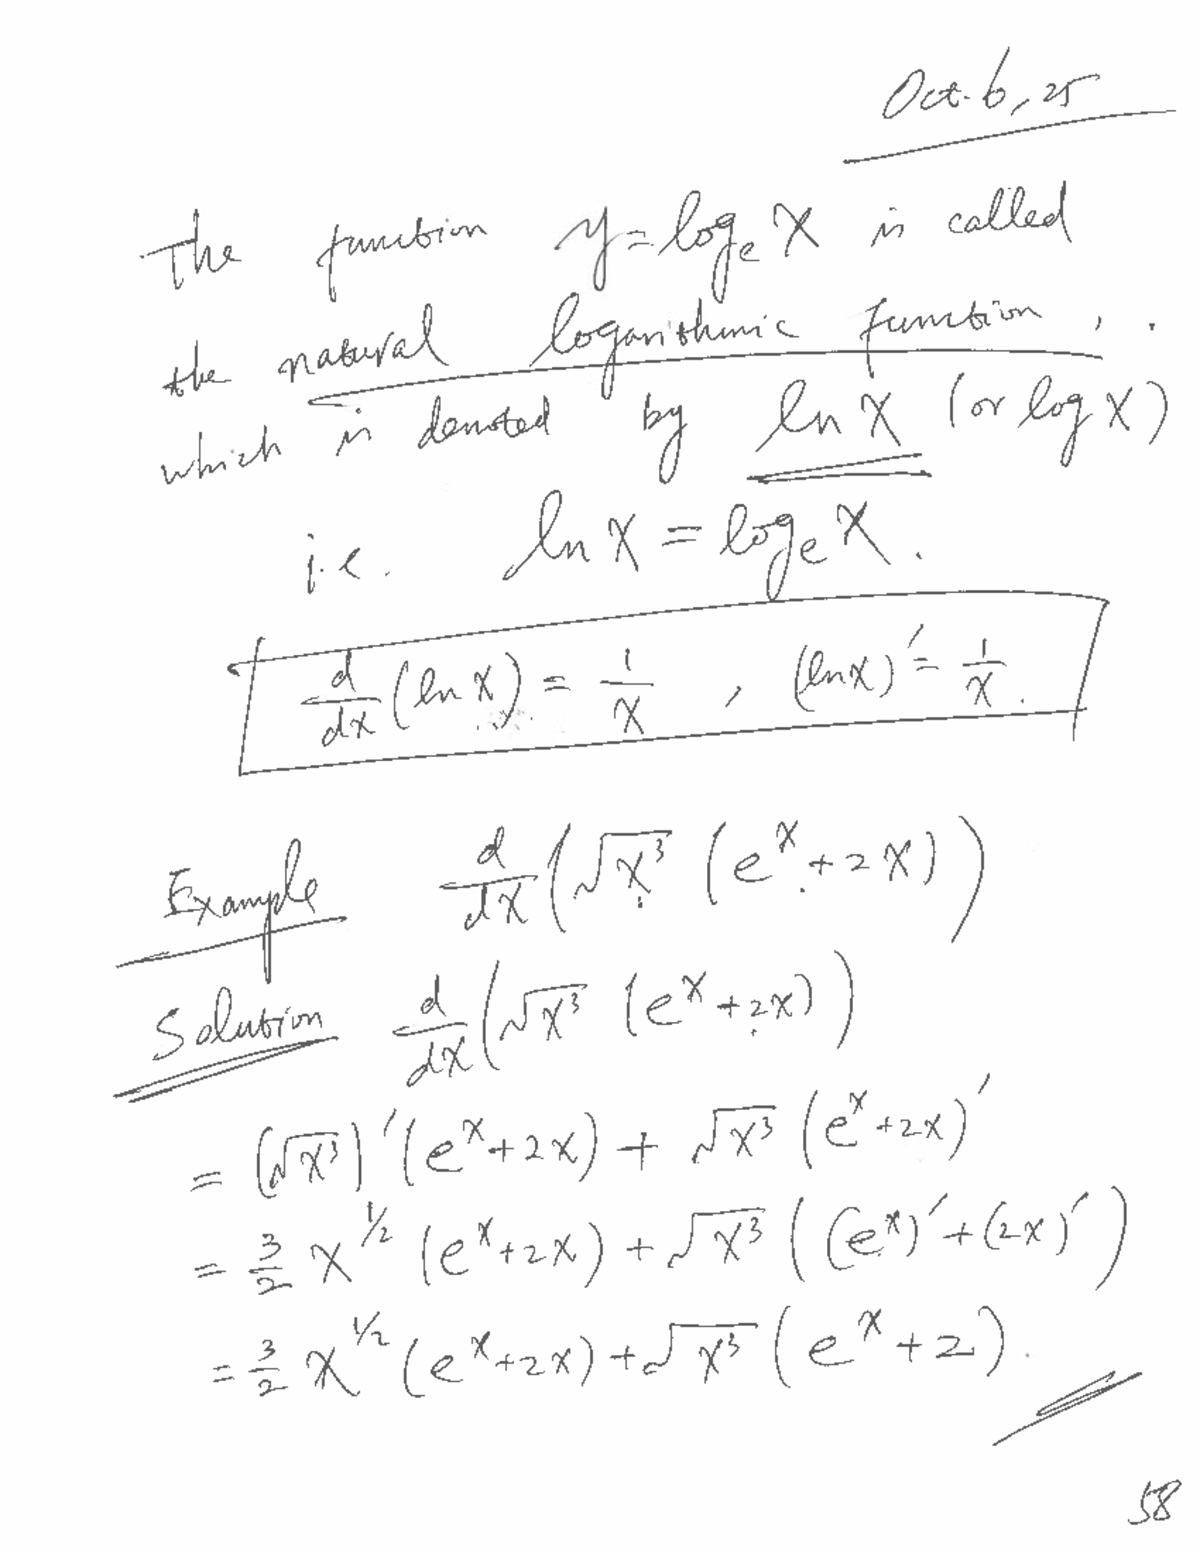 Oct. 6, 25
The function y = logₑ x is called
the natural logarithmic function,
which is denoted by ln x (or log x)
i.e. ln x = logₑ x.
d/dx (ln x) = 1/x , (ln x)′ = 1/x.
Example d/dx (√x³ (eˣ + 2x))
Solution d/dx (√x³ (eˣ + 2x))
= (√x³)′ (eˣ + 2x) + √x³ (eˣ + 2x)′
= 3/2 x^1/2 (eˣ + 2x) + √x³ ((eˣ)′ + (2x)′)
= 3/2 x^1/2 (eˣ + 2x) + √x³ (eˣ + 2).
58